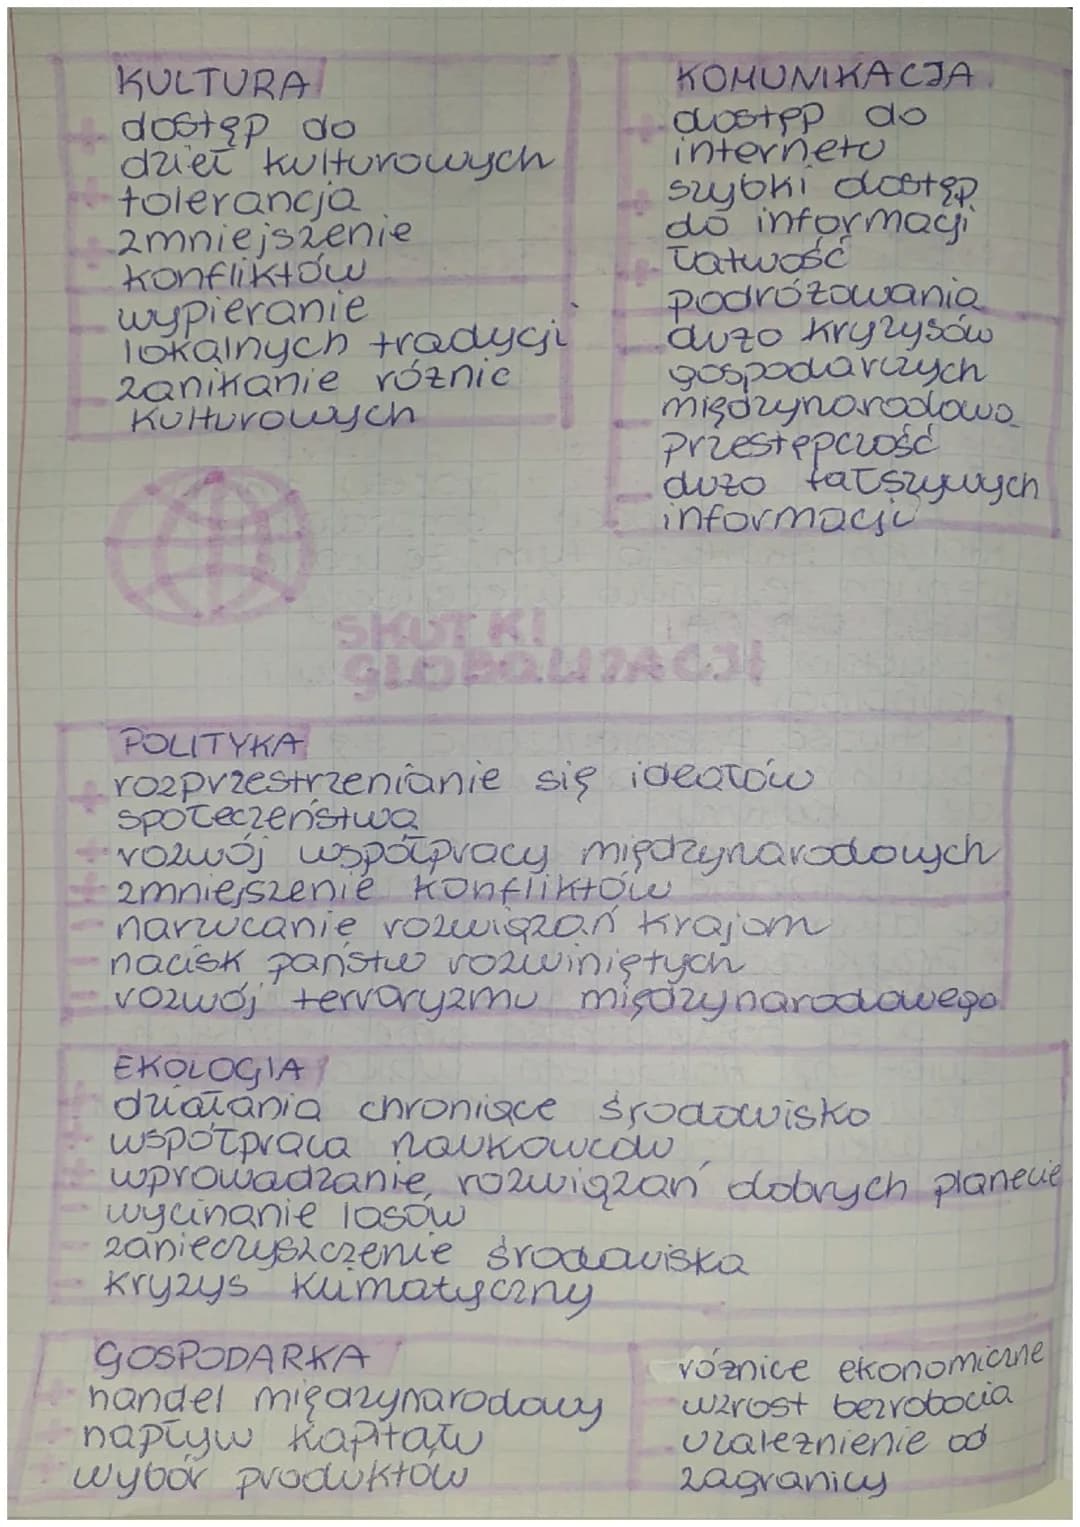 KULTURA
+ dostęp do
dzieł kulturowych
+ tolerancja
+ zmniejszenie
konfliktów
- wypieranie
lokalnych tradycji
- zanikanie różnic
kulturowych
KOMUNIKACJA
+ dostęp do
internetu
+ szybki dostęp
do informacji
+ łatwość
podróżowania
- dużo kryzysów
gospodarczych
- międzynarodowa
przestępczość
- dużo fałszywych
informacji
SKUTKI
GLOBALIZACJI
POLITYKA
+ rozprzestrzenianie się ideałów
społeczeństwa
+ rozwój współpracy międzynarodowych
+ zmniejszenie konfliktów
- narzucanie rozwiązań krajom
- nacisk państw rozwiniętych
- rozwój terroryzmu międzynarodowego
EKOLOGIA
+ działania chroniące środowisko
+ współpraca naukowców
+ wprowadzanie rozwiązań dobrych planecie
- wycinanie lasów
- zanieczyszczenie środowiska
- kryzys klimatyczny
GOSPODARKA
+ handel międzynarodowy
+ napływ kapitału
+ wybór produktów
- różnice ekonomiczne
- wzrost bezrobocia
- uzależnienie od
zagranicy